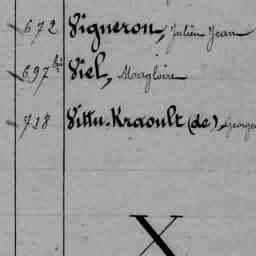 672 Vigneron, Julien Jean
697 bis Viel, Magloire
718 Vittu-Kraoult (de), Georges
X